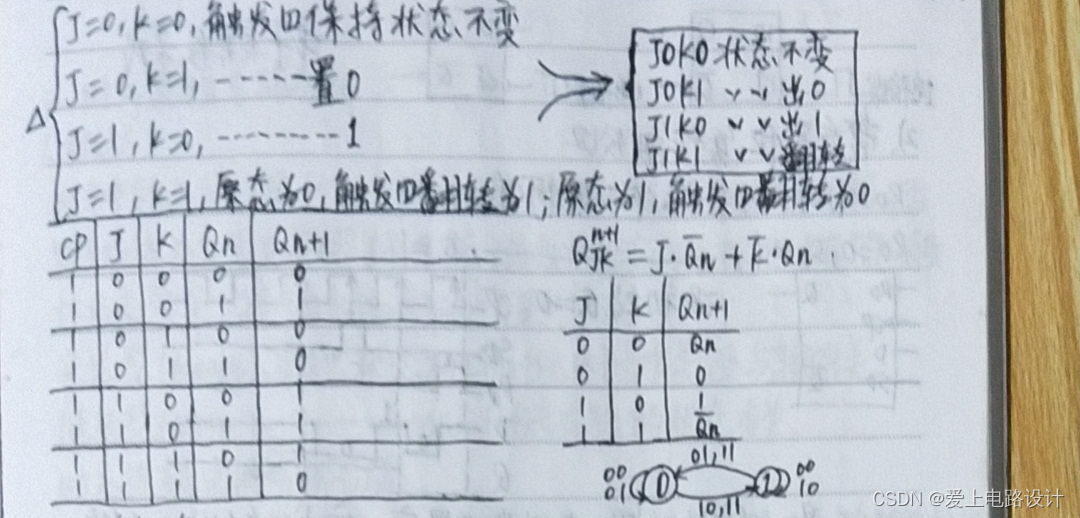 J=0, K=0, 触发口保持状态不变
J=0, K=1, ------置0
J=1, K=0, ---------1
J=1, K=1, 原态为0, 触发口翻转为1; 原态为1, 触发口翻转为0
J0K0 状态不变
J0K1 〃 〃 出0
J1K0 〃 〃 出1
J1K1 〃 〃 翻转
CP J K Qn Qn+1
1 0 0 0 0
1 0 0 1 1
1 0 1 0 0
1 0 1 1 0
1 1 0 0 1
1 1 0 1 1
1 1 1 0 1
1 1 1 1 0
Q^{n+1}_{JK} = J·Q̅n + K̅·Qn
J K Qn+1
0 0 Qn
0 1 0
1 0 1
1 1 Q̅n
01,11
00 0 1 00
01 10
10,11
CSDN @爱上电路设计